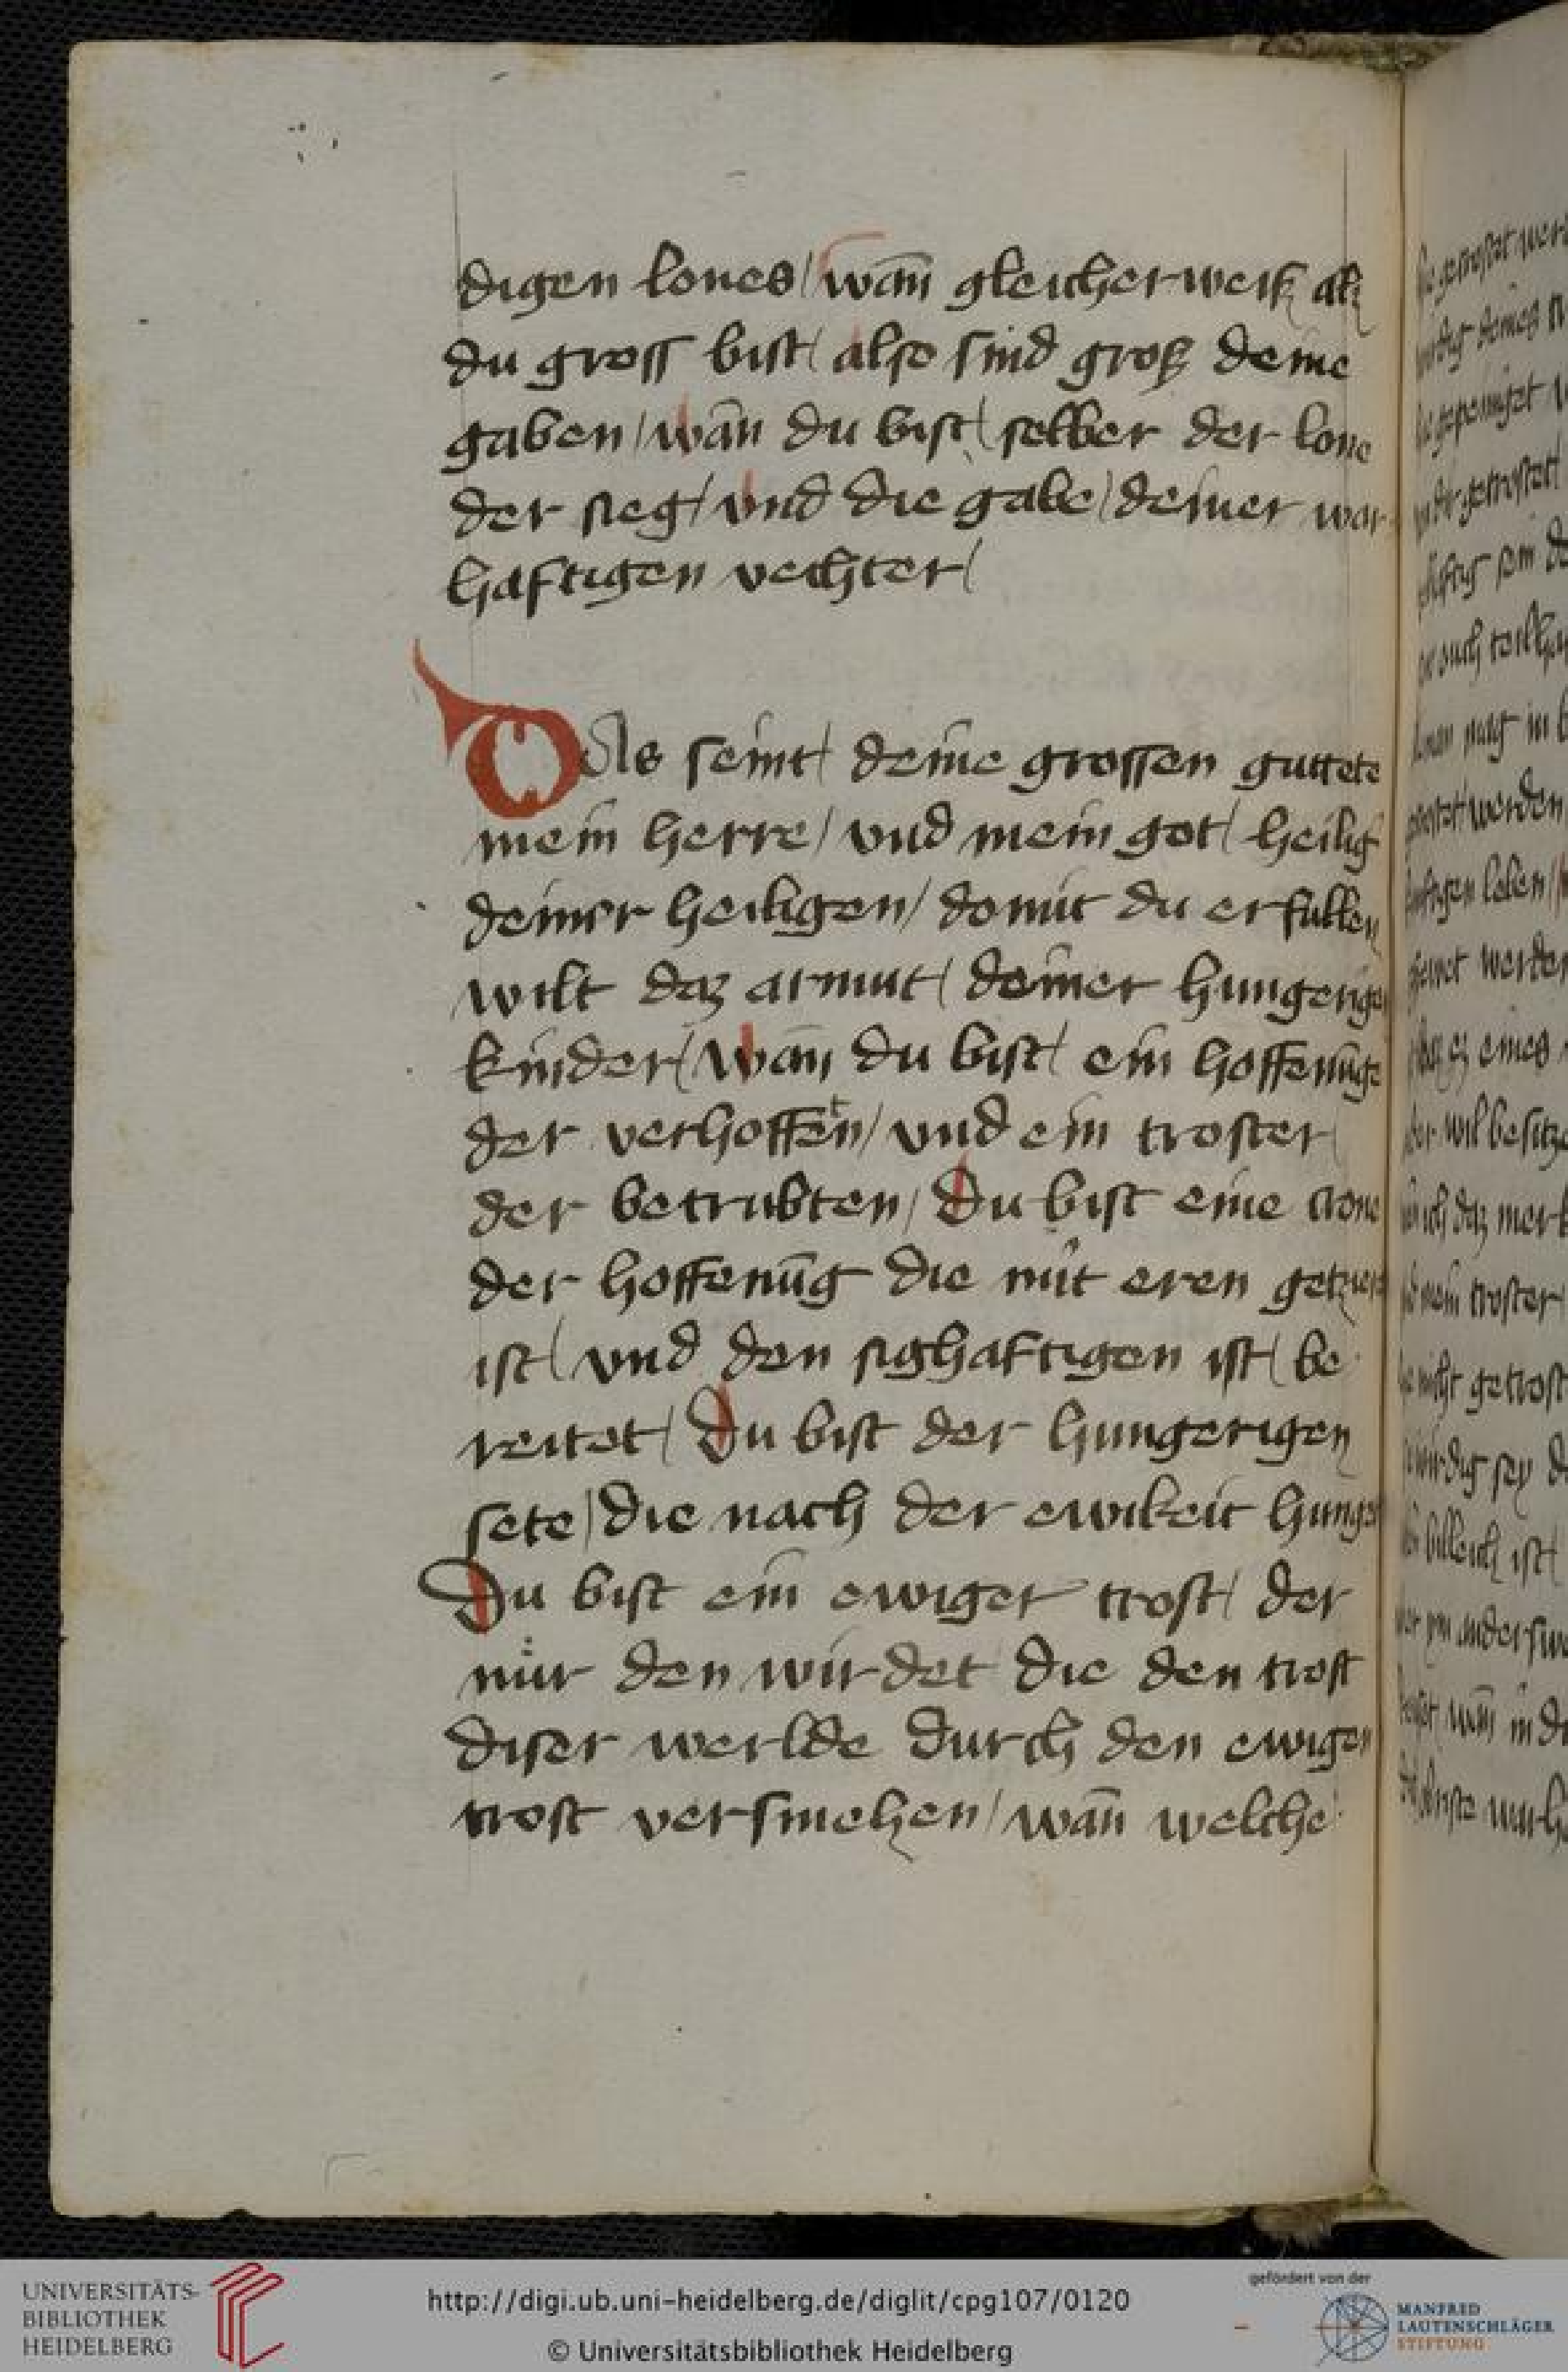 digen lones / wan̄ gleicher weiß alß
du gross bist / also sind groß deine
gaben / wan̄ du bist / selber der lone
der sieg / vnd die gabe / deiner war
haftigen vechter /
Das seint / deine grossen guttete
mein herre / vnd mein got / heilig
deiner heiligen / domit du erfullen
wilt daz armut / deiner hungerigen
kinder / wan̄ du bist / ein hoffenūge
der verhoffeten / vnd ein troster /
der betrubten / Du bist eine crone
der hoffenūg die mit eren getzieret
ist / vnd den sighaftigen ist / be
reitet / Du bist der hungerigen
sete / die nach der ewikeit hunger
Du bist ein ewiger trost / der
nür den wirdet die den trost
diser werlde durch den ewigen
trost versmehen / wan̄ welche
wirdig deines
getrostet
sein
auch
man mag in
werden
leben
werden
eines
wil besitze
ich daz merk
mein troster
nicht getrost
wirdig sey
billeich ist /
anderswo
wan̄ in
UNIVERSITÄTS-
BIBLIOTHEK
HEIDELBERG
http://digi.ub.uni-heidelberg.de/diglit/cpg107/0120
© Universitätsbibliothek Heidelberg
gefördert von der
MANFRED
LAUTENSCHLÄGER
STIFTUNG